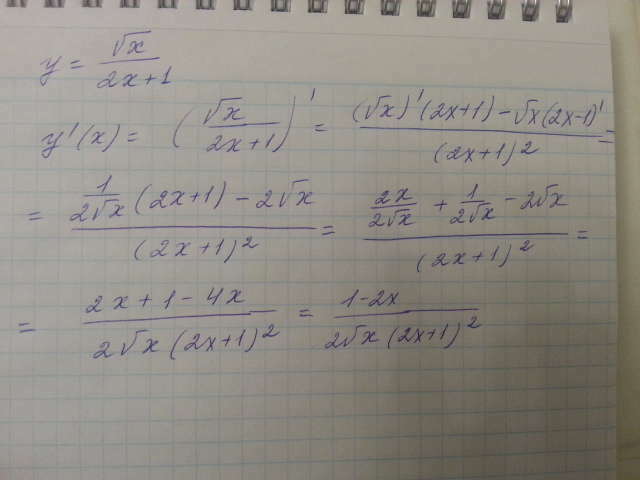 y = √x / (2x+1)
y'(x) = (√x / (2x+1))' = ((√x)'(2x+1) - √x(2x-1)') / (2x+1)² =
= (1/(2√x) (2x+1) - 2√x) / (2x+1)² = (2x/(2√x) + 1/(2√x) - 2√x) / (2x+1)² =
= (2x+1-4x) / (2√x(2x+1)²) = (1-2x) / (2√x(2x+1)²)